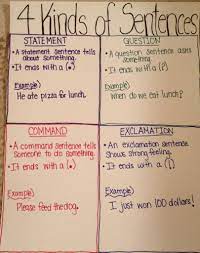 4 Kinds of Sentences
STATEMENT
• A statement sentence tells
about something.
• It ends with a (.)
Example)
He ate pizza for lunch.
QUESTION
• A question sentence asks
something.
• It ends with a (?)
Example)
When do we eat lunch?
COMMAND
• A command sentence tells
someone to do something.
• It ends with a (.)
Example)
Please feed the dog.
EXCLAMATION
• An exclamation sentence
shows strong feeling.
• It ends with a (!)
Example)
I just won 100 dollars!